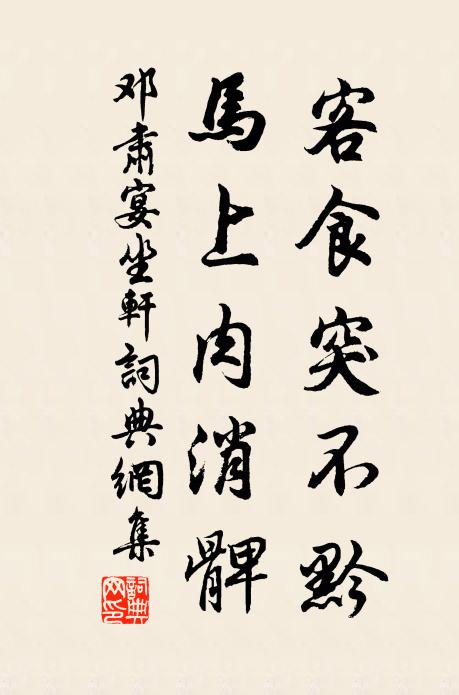 客食突不黔
馬上肉消髀
邓肅宴坐軒詞典網集
詞典網印